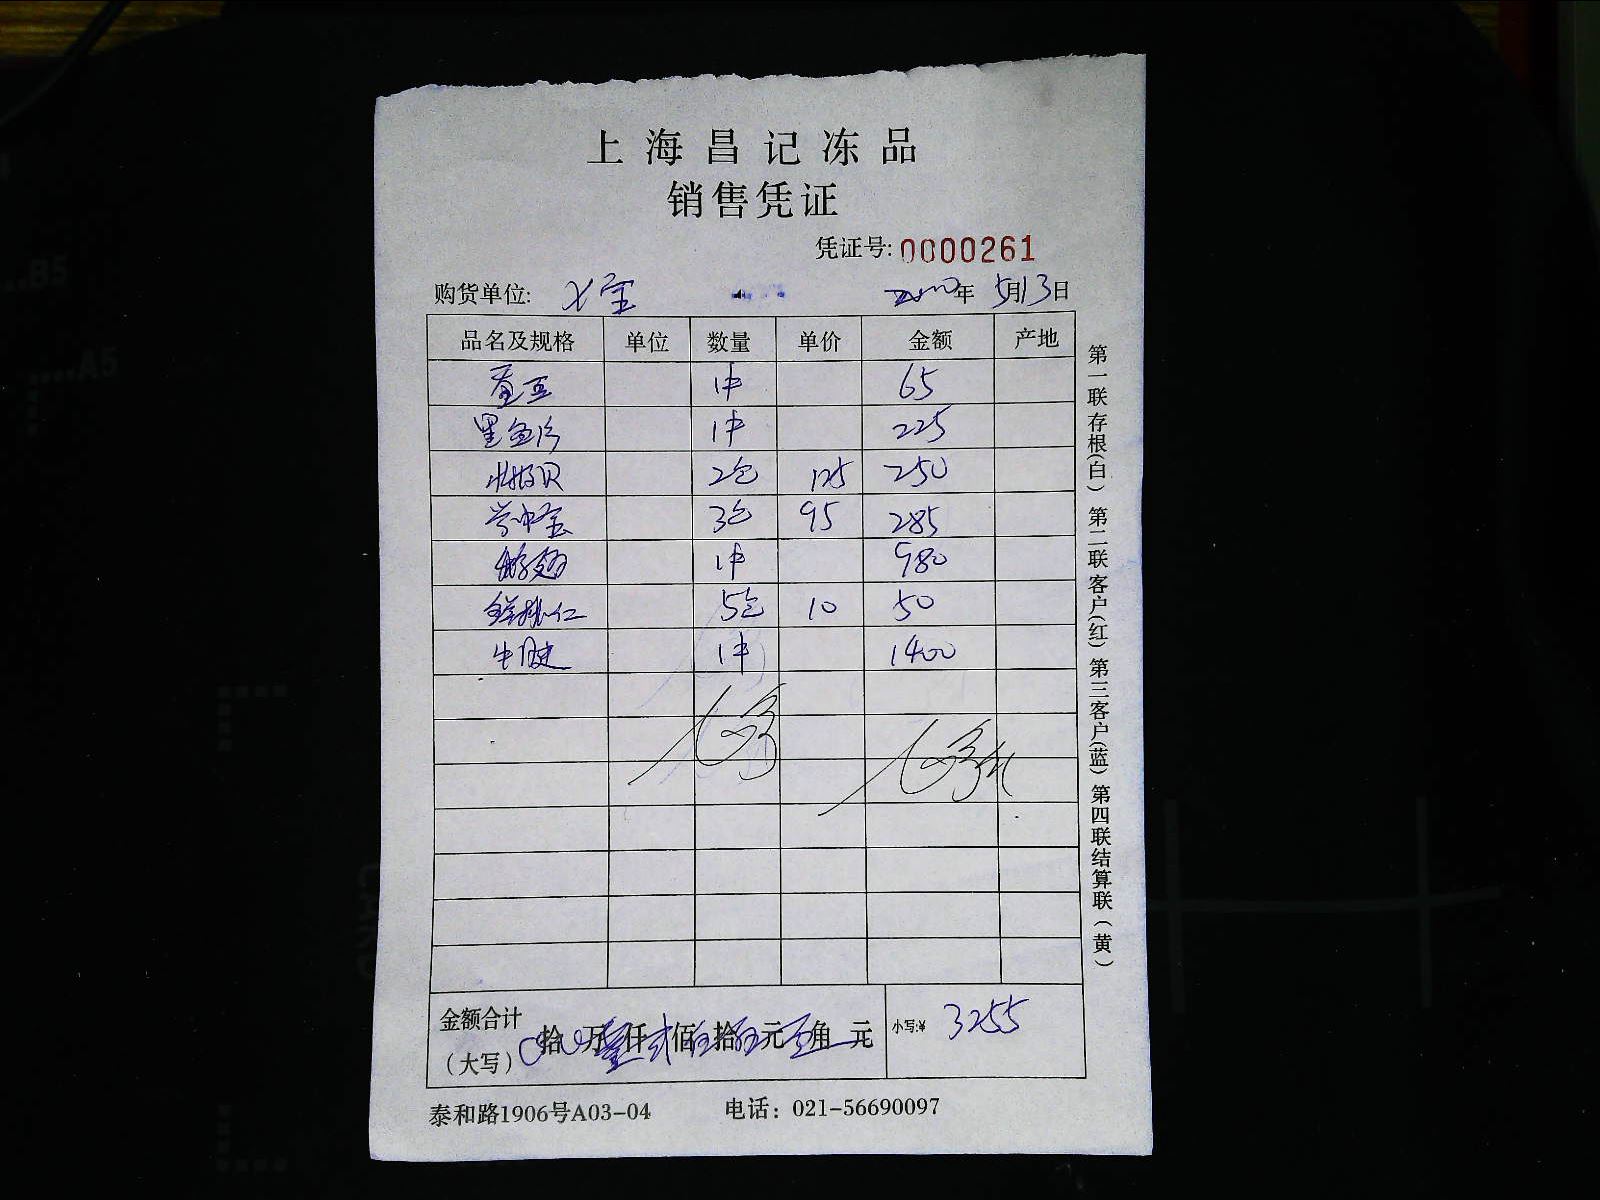 上海昌记冻品
销售凭证
凭证号: 0000261
购货单位: 七宝 年 5月13日
品名及规格 单位 数量 单价 金额 产地
1件 65
黑鱼片 1件 225
2包 125 250
3包 95 285
1件 980
鲜桃仁 5包 10 50
牛腱 1件 1400
金额合计
(大写) 拾 万 仟 佰 拾 元 角 元 小写:¥ 3255
泰和路1906号A03-04 电话: 021-56690097
第一联存根(白) 第二联客户(红) 第三客户(蓝) 第四联结算联(黄)